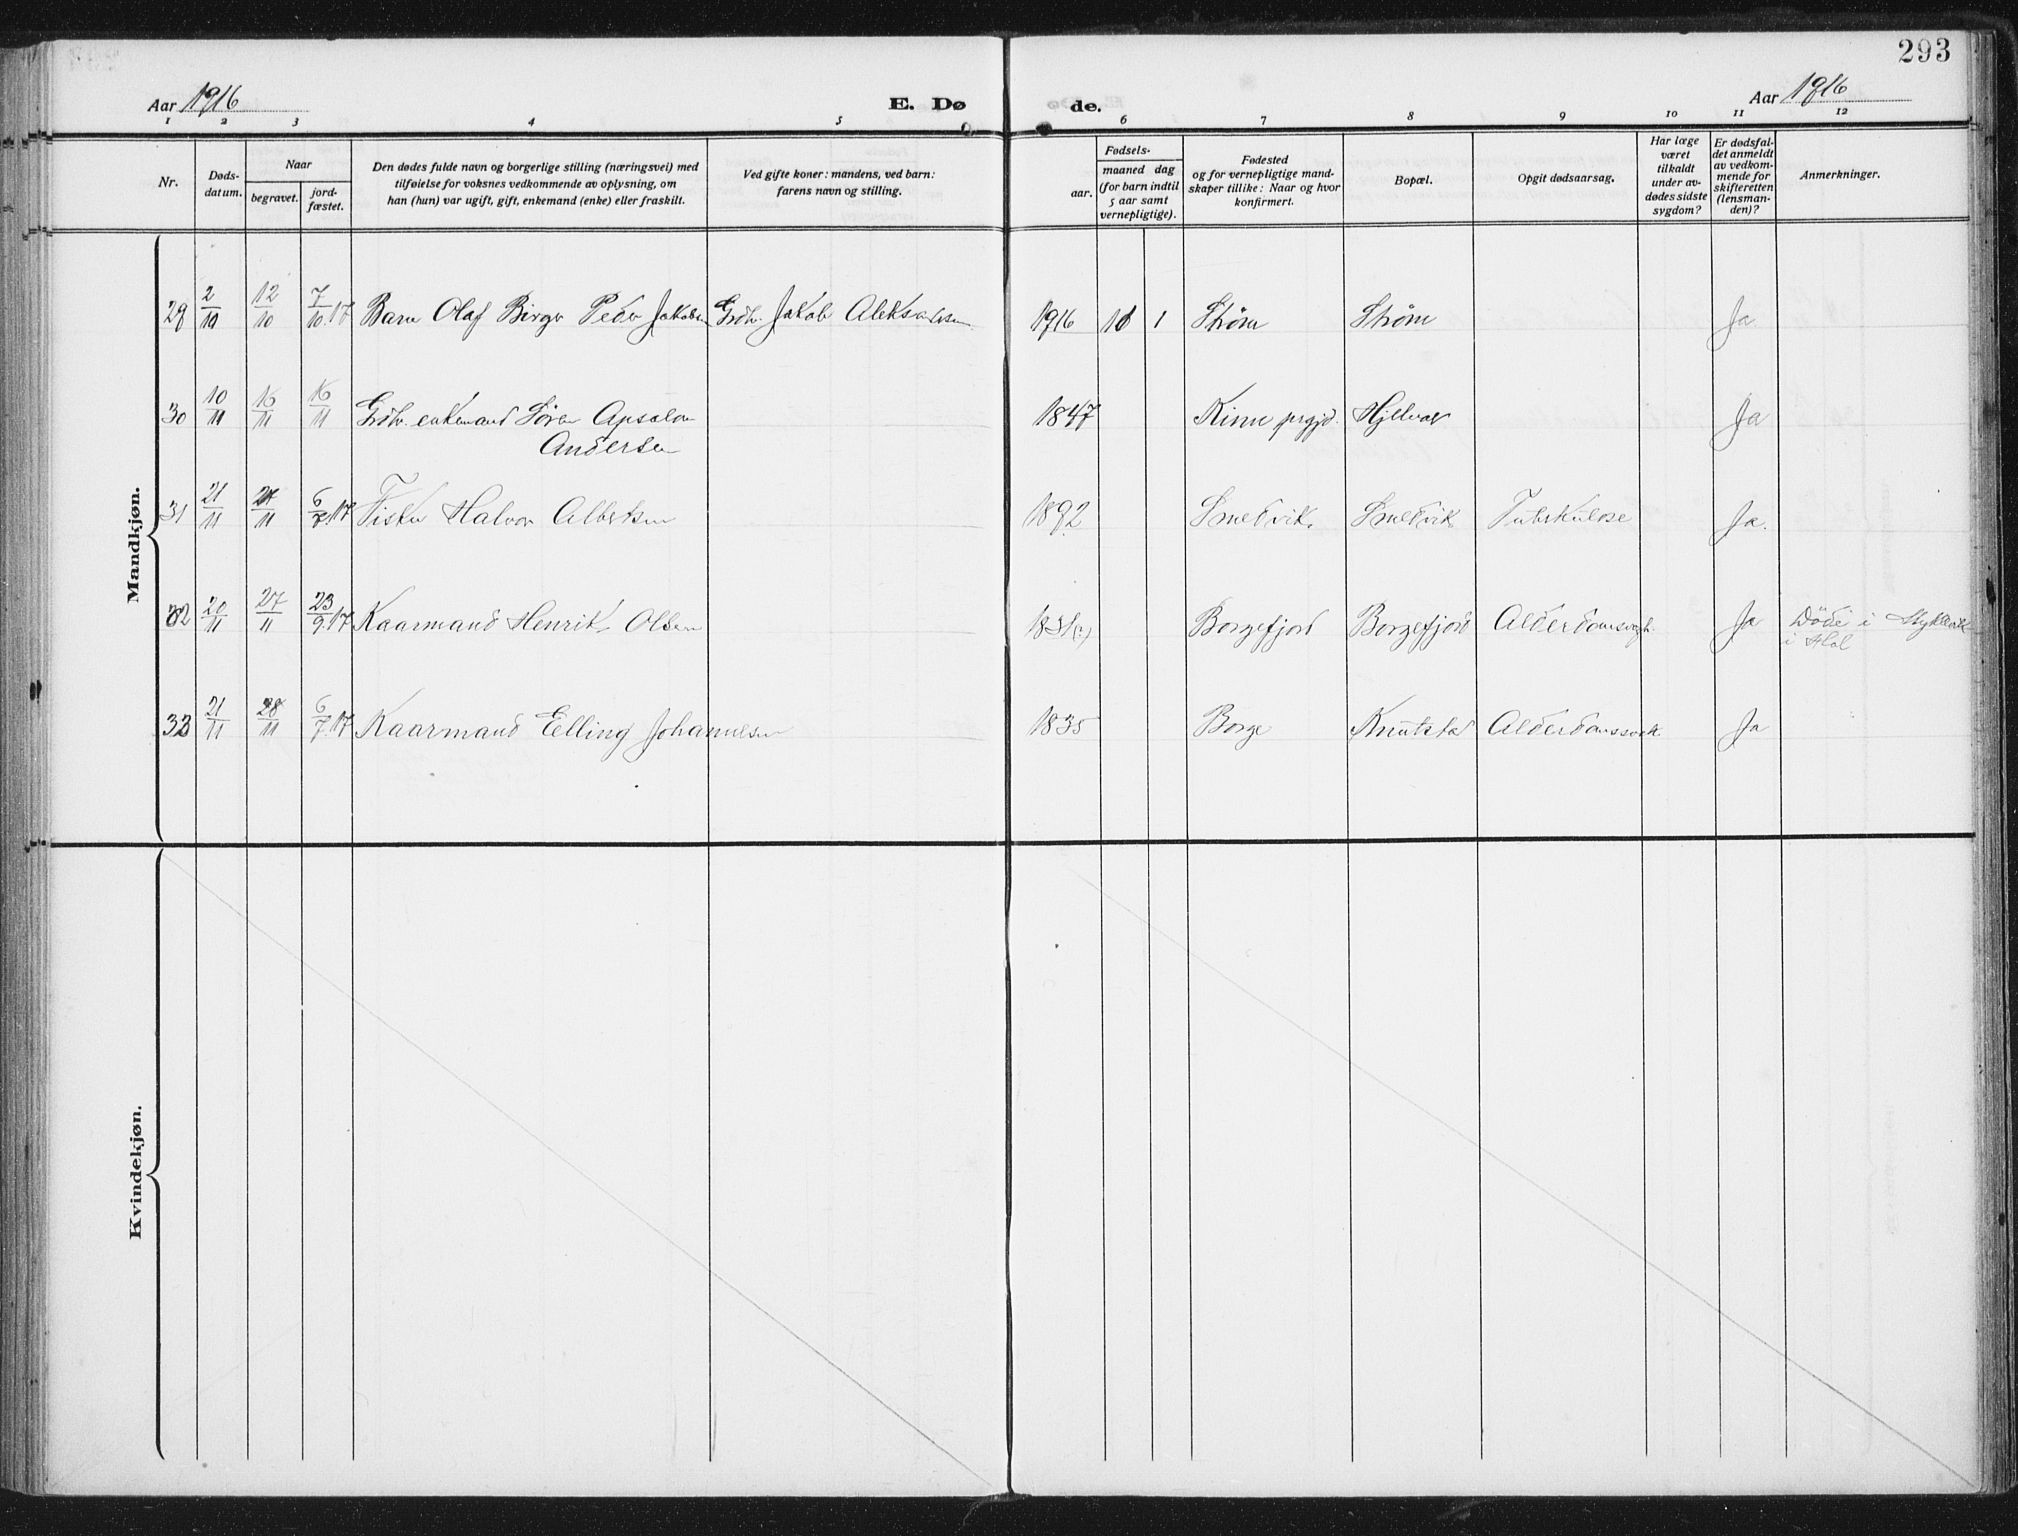 293
Aar 1916
E. Dø
de.
Aar 1916
1 2 3 4 5 6 7 8 9 10 11 12
Nr.
Døds-
datum.
Naar
begravet.
jord-
fæstet.
Den dødes fulde navn og borgerlige stilling (næringsvei) med
tilføielse for voksnes vedkommende av oplysning, om
han (hun) var ugift, gift, enkemand (enke) eller fraskilt.
Ved gifte koner: mandens, ved barn:
farens navn og stilling.
Fødsels-
aar.
maaned dag
(for barn indtil
5 aar samt
vernepligtige).
Fødested
og for vernepligtige mand-
skaper tillike: Naar og hvor
konfirmert.
Bopæl.
Opgit dødsaarsag.
Har læge
været
tilkaldt
under av-
dødes sidste
sygdom?
Er dødsfal-
det anmeldt
av vedkom-
mende for
skifteretten
(lensman-
den)?
Anmerkninger.
Mandkjøn.
29 2/10 12/10 7/10.17 Barn Olaf Birger Peder Jakobsen Grdbr. Jakob Aleksandersen 1916 10 1 Strøm Strøm Ja
30 10/11 16/11 16/11 Grdbr. enkemand Søren Apsalon 1847 Kinn prgjd. Hjelvar Ja
Andersen
31 21/11 27/11 6/7.17 Fisker Halvor Albertsen 1892 Smedvik Smedvik Tuberkulose Ja.
32 20/11 27/11 23/9.17 Kaarmand Henrik Olsen 1831(?) Borgefjord Borgefjord Alderdomsvagh. Ja Døde i
i Hol
33 21/11 28/11 6/7.17 Kaarmand Elling Johannesen 1835 Borge Knutstad Alderdomssvak Ja
Kvindekjøn.